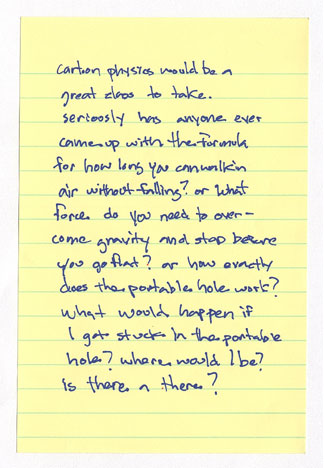 cartoon physics would be a
great class to take.
seriously has anyone ever
came up with the formula
for how long you can walk in
air without falling? or what
force do you need to over-
come gravity and stop before
you go flat? or how exactly
does the portable hole work?
what would happen if
I got stuck in the portable
hole? where would I be?
is there a there?